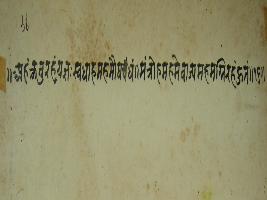 ॥अहंक्रतुरहंयज्ञःस्वधाहमहमौषधं॥मंत्रोहमहमेवाज्यमहमग्निरहंहुतं॥१६॥